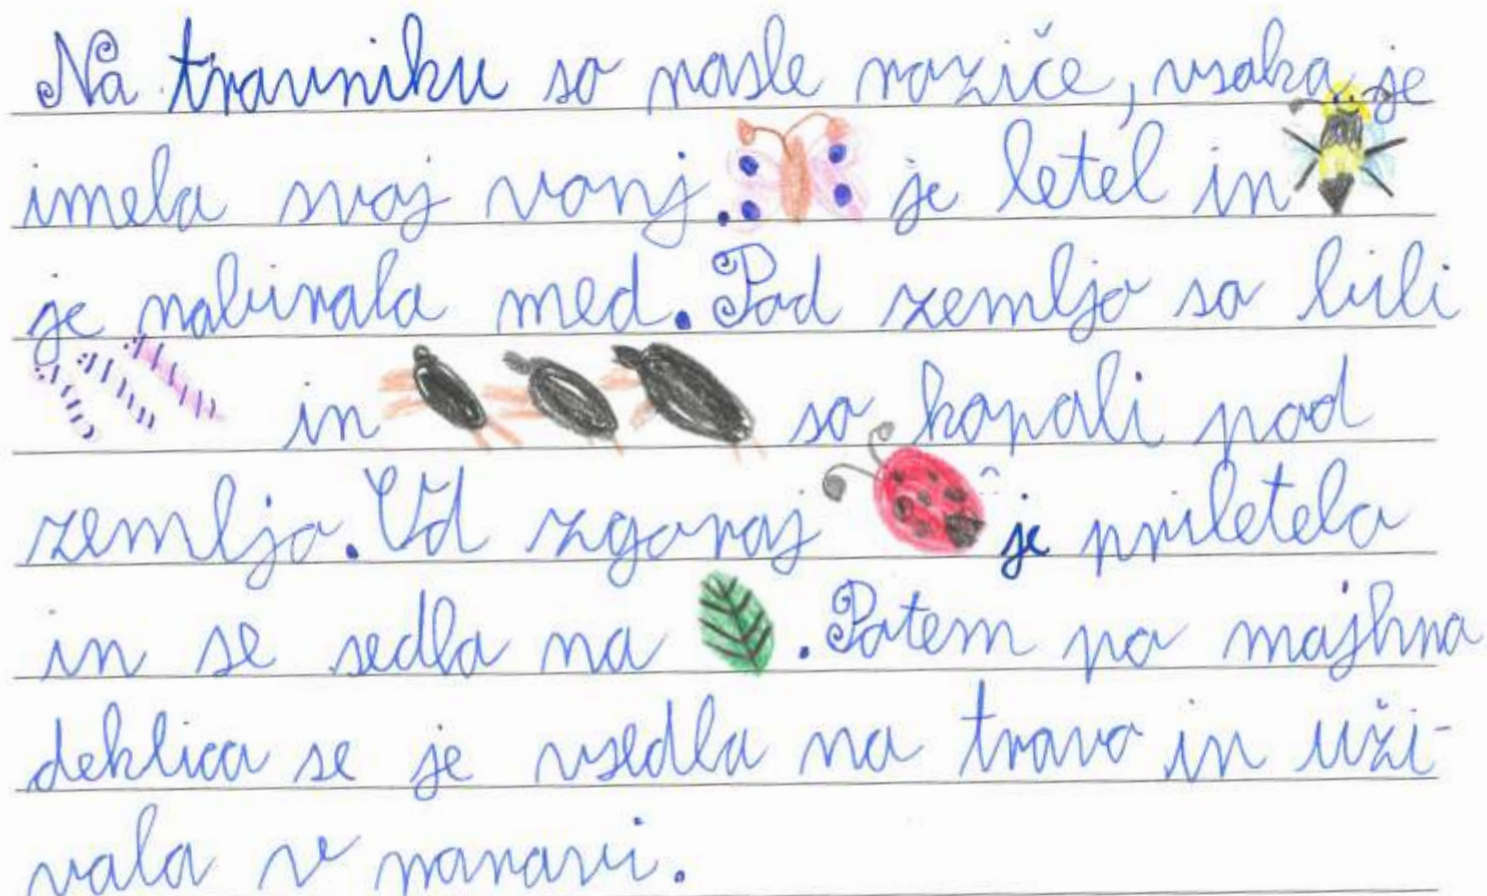 Na travniku so rasle rožiče, vsaka je
imela svoj vonj. je letel in
je nabirala med. Pod zemljo so bili
in so kopali pod
zemljo. Od zgoraj je priletela
in se sedla na . Potem pa majhna
deklica se je vsedla na travo in uži-
vala v naravi.